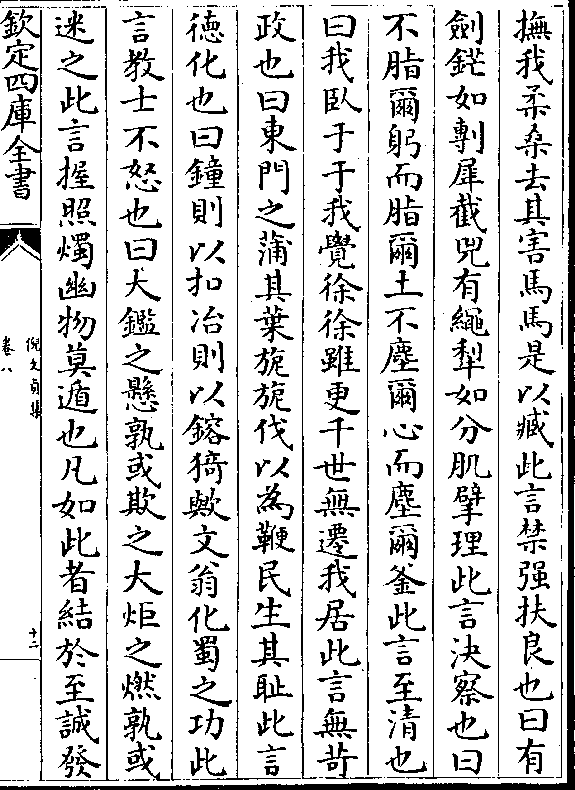 撫我柔桑去其害馬馬是以臧此言禁强扶良也曰有
劍鋩如剸犀截兕有繩犁如分肌擘理此言決察也曰
不脂爾躬而脂爾土不塵爾心而塵爾釜此言至清也
曰我臥于于我覺徐徐雖更千世無遷我居此言無苛
政也曰東門之蒲其葉旎旎伐以為鞭民生其耻此言
德化也曰鐘則以扣冶則以鎔猗歟文翁化蜀之功此
言教士不怒也曰大鑑之懸孰或欺之大炬之燃孰或
迷之此言握照燭幽物莫遁也凡如此者結於至誠發
欽定四庫全書
倪文貞集
卷八
十二